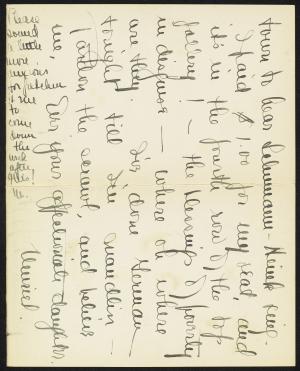 town to hear Schumann-Heink sing.
I paid $1.00 for my seat, and
it's in the fourth row of the top
gallery! — the blessings of poverty
in disguise — where oh where
are they? done German
tonight till I'm maudlin —
Pardon the scrawl, and believe
me,
Ever your affectionate daughter
Muriel.
Please
send
a little
more
for
to
come
down
the
week
after
M.